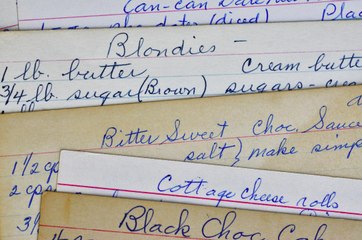 Can-Can
(diced)
Blondies -
1 lb. butter Cream butte
3/4 lb. sugar (Brown) sugars-
Bitter Sweet Choc. Sauce
salt } make simp
1 1/2 cp
2 cps
Cottage cheese rolls
3/4
Black Choc.